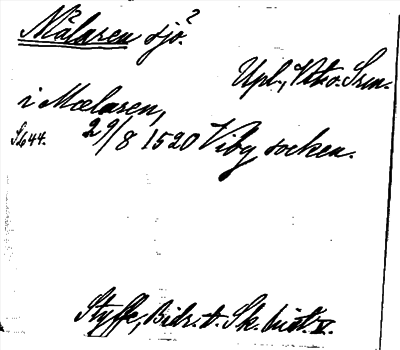 Mälaren sjö?
Upl., Vtm. o. Srm.
i Mælaren,
S. 644. 29/8 1520 Viby socken.
Styffe, Bidr. t. Sk. hist. V.